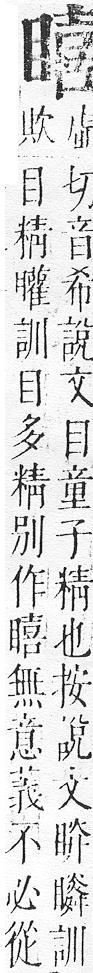 瞦
虛切音希說文目童子精也按說文眹瞵訓
欺目精矔訓目多精別作瞦無意義不必從